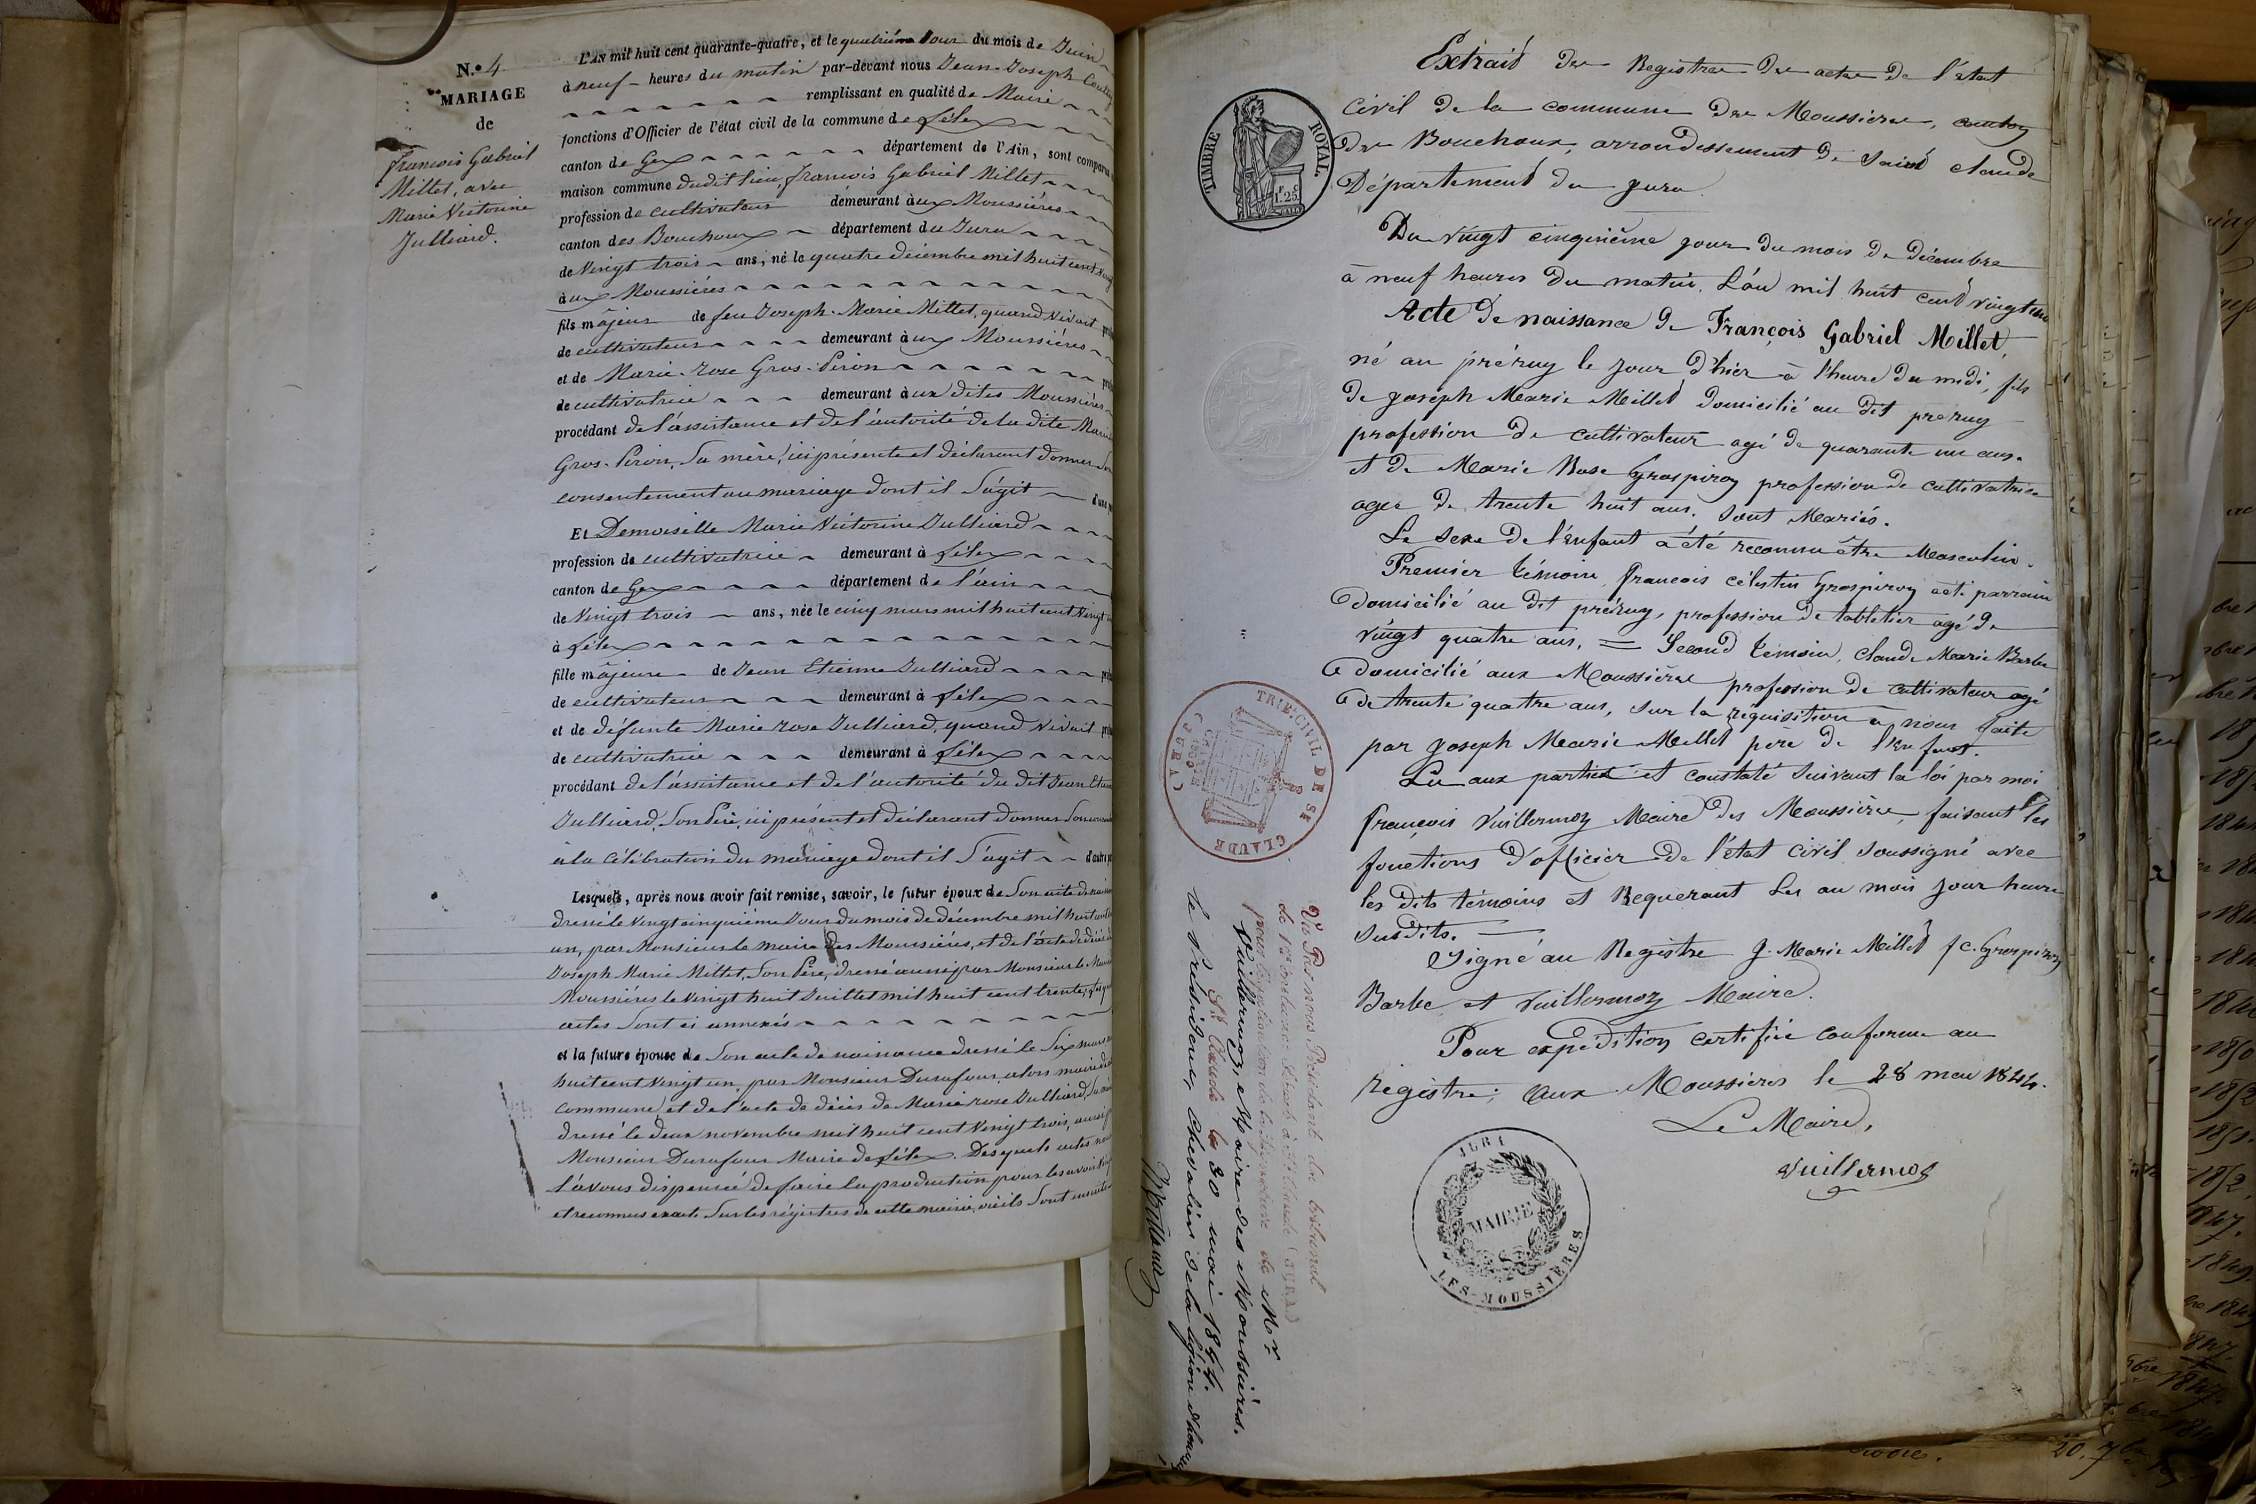 N.° 4
MARIAGE
de
François Gabriel
Millet, avec
Marie Victorine
Julliard.
L'AN mil huit cent quarante-quatre, et le quatrième Jour du mois de Juin
à neuf heures du matin par-devant nous Jean-Joseph
remplissant en qualité de Maire
fonctions d'Officier de l'état civil de la commune de Lélex
canton de Gex département de l'Ain, sont comparus
maison commune dudit lieu, François Gabriel Millet
profession de cultivateur demeurant aux Moussières
canton des Bouchoux département du Jura
de Vingt trois ans, né le quatre décembre mil huit cent Vingt
aux Moussières
fils majeur de feu Joseph-Marie Millet, quand Vivait
de cultivateur demeurant aux Moussières
et de Marie-rose Gros-Piron
de cultivatrice demeurant aux dites Moussières
procédant de l'assistance et de l'autorité de la dite Marie
Gros-Piron, Sa mère, ici présente et déclarant donner Son
consentement au mariage dont il S'agit
Et Demoiselle Marie Victorine Julliard
profession de cultivatrice demeurant à Lélex
canton de Gex département de l'ain
de Vingt trois ans, née le cinq mars mil huit cent Vingt
à Lélex
fille majeure de Jean Etienne Julliard
de cultivateur demeurant à Lélex
et de défunte Marie rose Julliard, quand Vivait
de cultivatrice demeurant à Lélex
procédant de l'assistance et de l'autorité du dit Jean
Julliard, Son Père, ici présent et déclarant donner Son
à la célébration du mariage dont il S'agit
Lesquels, après nous avoir fait remise, savoir, le futur époux de Son acte de
dressé le Vingt cinquième Jour du mois de décembre mil huit cent
un, par Monsieur le maire des Moussières, et de l'acte de décès de
Joseph Marie Millet, Son Père, dressé aussi par Monsieur le
Moussières le Vingt huit Juillet mil huit cent trente,
actes Sont ci annexés
et la future épouse de Son acte de naissance dressé le Six mars
huit cent Vingt un, par Monsieur Durafour, alors maire de
commune, et de l'acte de décès de Marie rose Julliard,
dressé le deux novembre mil huit cent Vingt trois, aussi
Monsieur Durafour Maire de Lélex. Desquels actes nous
l'avons dispensée de faire la production pour les avoir
et reconnus exacts Sur les régistres de cette mairie, où ils Sont inscrits
Extrait des Registres des actes de l'état
civil de la commune des Moussières, canton
des Bouchoux, arrondissement de Saint Claude
Département du jura
TIMBRE ROYAL.
Du vingt cinquième jour du mois de Décembre
à neuf heures du matin. L'an mil huit cent vingt un
Acte de naissance de François Gabriel Millet,
né au préruy le jour d'hier à l'heure du midi, fils
de joseph Marie Millet domicilié au dit preruy
profession de cultivateur agé de quarante un ans.
et de Marie Rose Grospiron profession de cultivatrice
agée de trente huit ans. Sont Mariés.
Le sexe de l'enfant a été reconnu être Masculin.
Premier témoin, francois célestin Grospiron parrain
domicilié au dit préruy, profession de tabletier agé de
vingt quatre ans. = Second témoin, Claude Marie Barbe
domicilié aux Moussières profession de cultivateur agé
de trente quatre ans, sur la réquisition a nous faite
par joseph Marie Millet père de l'enfant.
Lu aux parties et constaté suivant la loi par moi
françois Vuillermoz Maire des Moussières, faisant les
fonctions d'officier de l'état civil soussigné avec
les dits témoins et Requerant les an mois jour heure
susdits.
Signé au Registre J. Marie Millet f c. Grospiron
Barbe et Vuillermoz Maire.
Pour expédition certifiée conforme au
régistre; aux Moussières le 28 mai 1844.
Le Maire,
Vuillermoz
JURA
MAIRIE
LES-MOUSSIÈRES
TRIB. CIVIL DE ST CLAUDE
(JURA)
Vu Par nous Président du tribunal
de 1re instance séant à St Claude (JURA)
pour légalisation de la signature de Mr
Vuillermoz, Maire des Moussières.
St Claude le 30 mai 1844.
le Président, Chevalier de la légion d'honneur